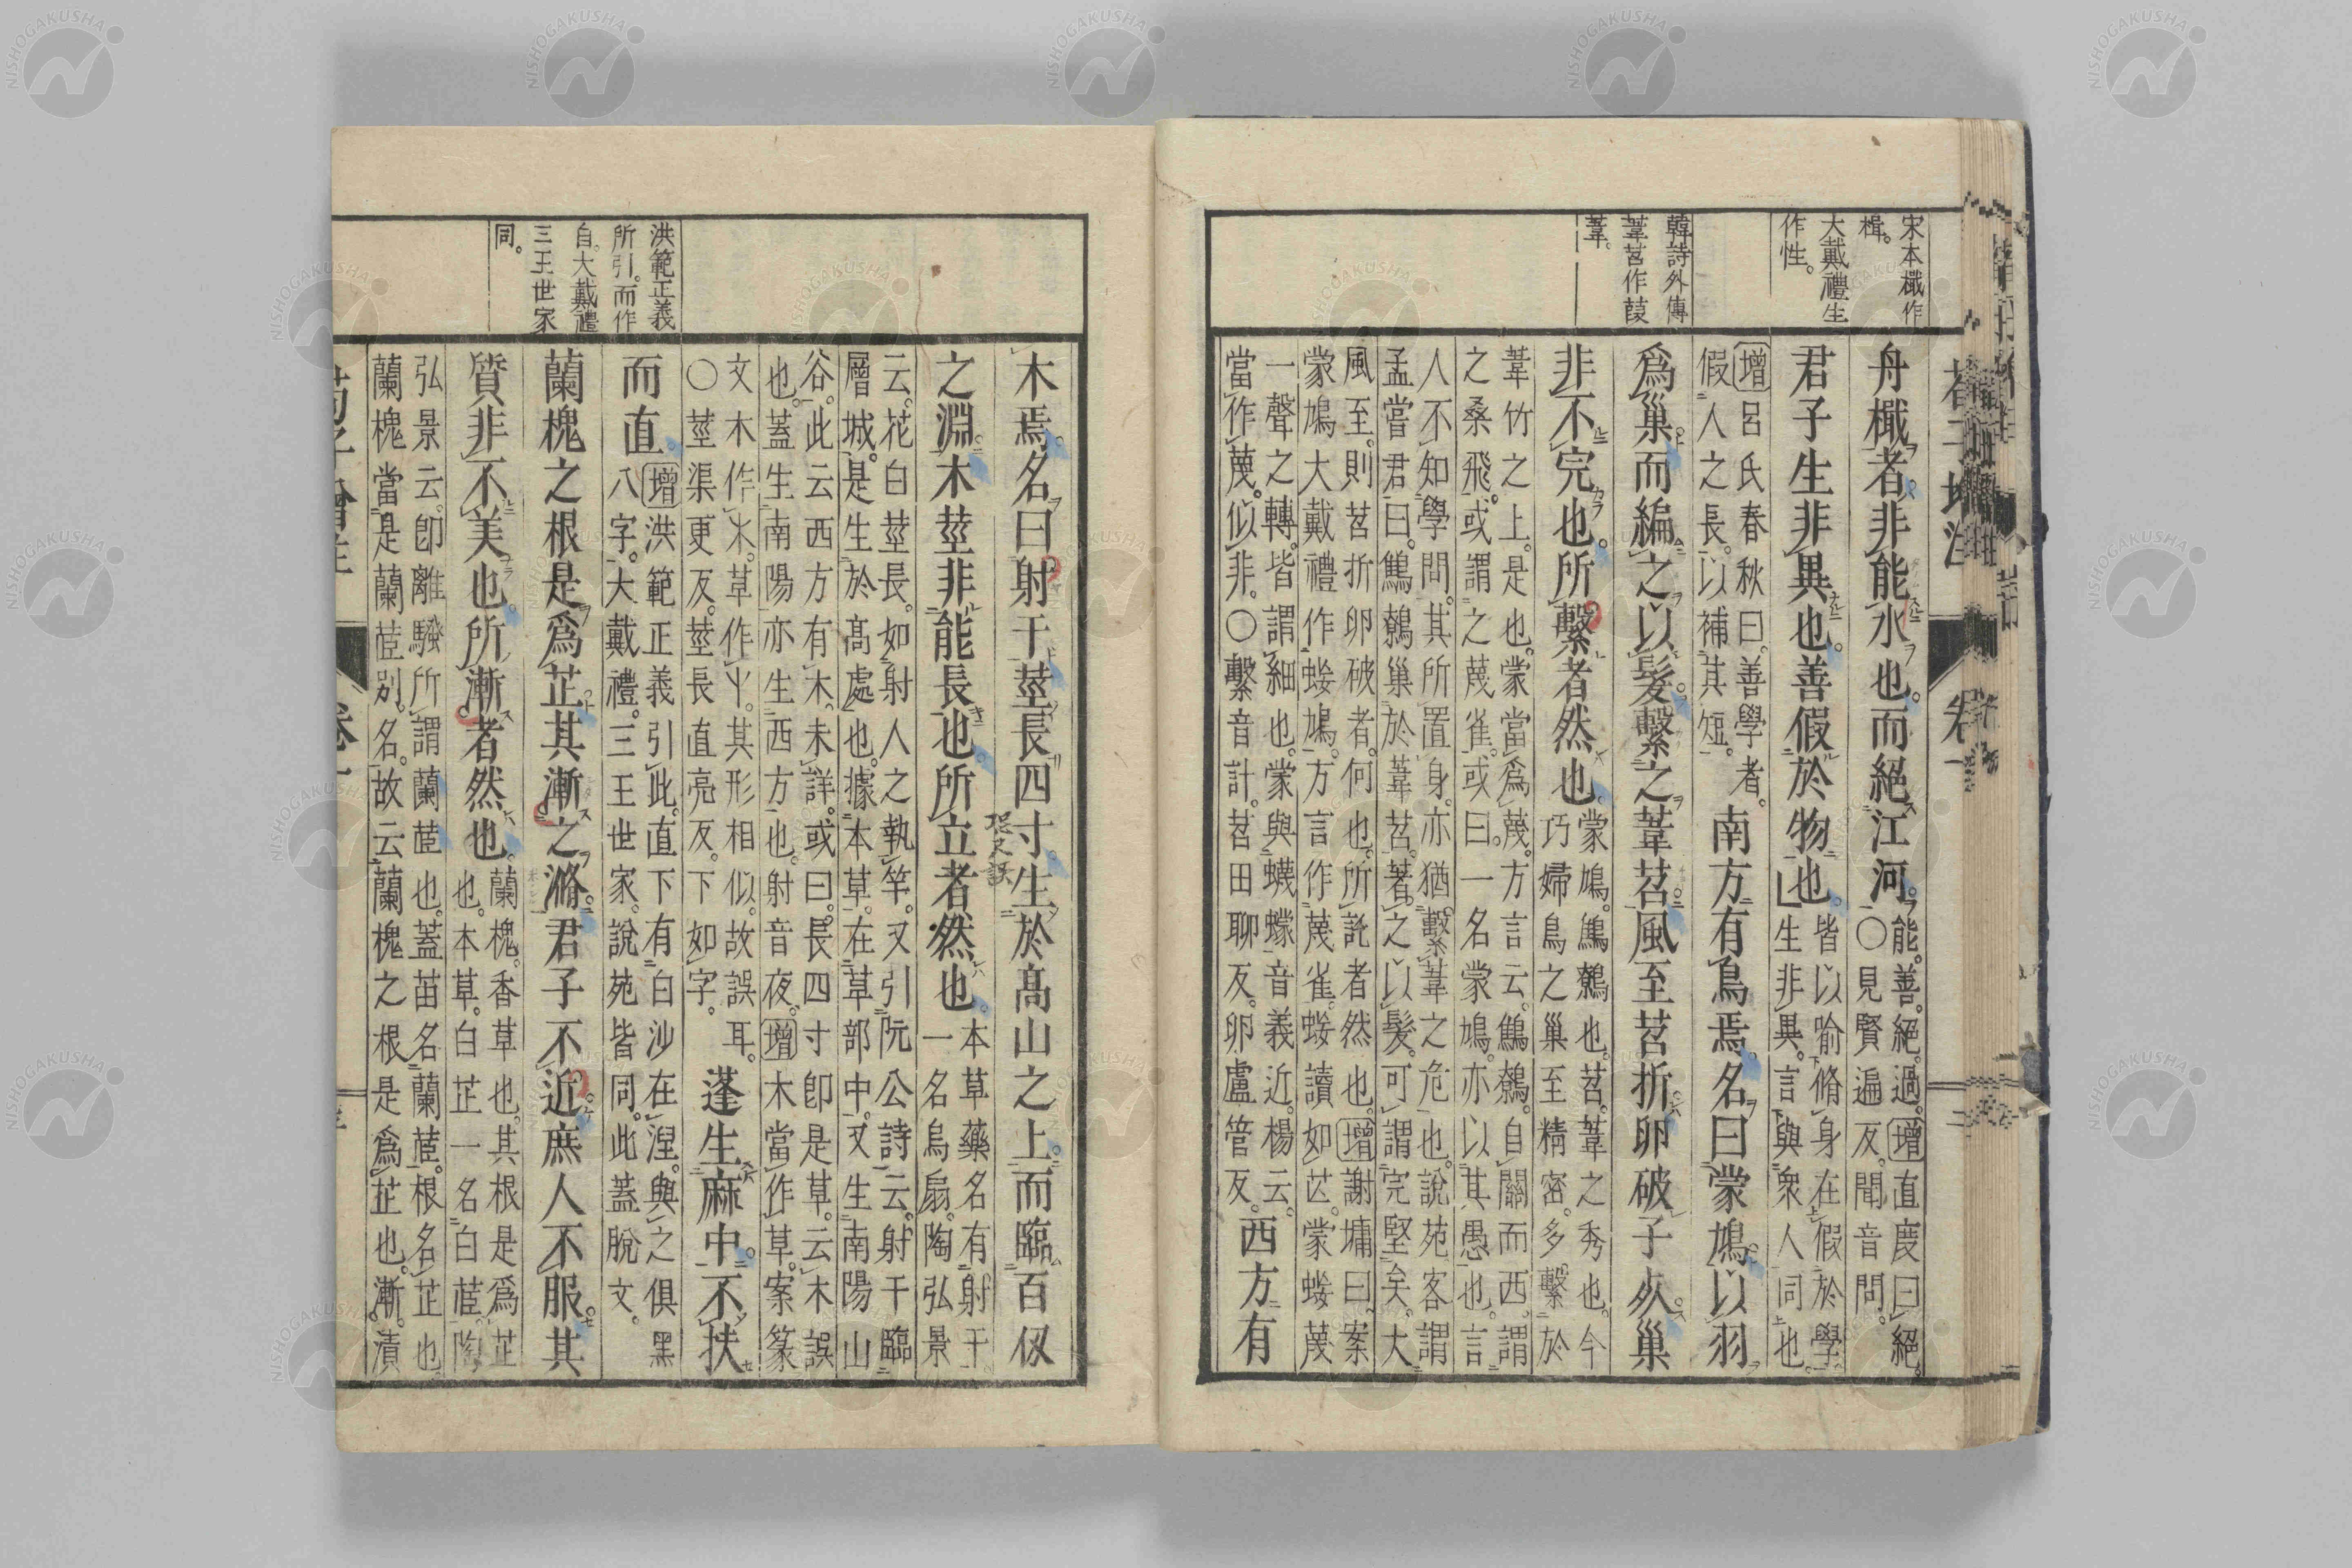 宋本檝作
楫。
大戴禮生
作性。
韓詩外傳
葦苕作葭
葦。
舟檝者。非能水也。而絕江河。
能。善。絕。過。增直度曰絕。
〇見賢遍反。聞音問。
君子生非異也。善假於物也。
皆以喻脩身在假於學
生非異。言與衆人同也。
增呂氏春秋曰。善學者。
假人之長。以補其短。
南方有鳥焉。名曰蒙鳩。以羽
爲巢。而編之以髮。繫之葦苕。風至苕折。卵破子死。巢
非不完也。所繫者然也。
蒙鳩。鷦鷯也。苕。葦之秀也。今
巧婦鳥之巢至精密。多繫於
葦竹之上。是也。蒙當爲蔑。方言云。鷦鷯。自關而西。謂
之桑飛。或謂之蔑雀。或曰。一名蒙鳩。亦以其愚也。言
人不知學問。其所置身。亦猶繫葦之危也。說苑客謂
孟嘗君曰。鷦鷯巢於葦苕。著之以髮。可謂完堅矣。大
風至。則苕折卵破者。何也。所託者然也。增謝墉曰。案
蒙鳩大戴禮作蛖鳩。方言作蔑雀。蛖讀如芒。蒙蛖蔑
一聲之轉。皆謂細也。蒙與蠛蠓音義近。楊云。
當作蔑。似非。〇繫音計。苕田聊反。卵盧管反。
西方有
木焉。名曰射干。莖長四寸。生於高山之上。而臨百仞
之淵。木莖非能長也。所立者然也。
本草藥名有射干
一名烏扇。陶弘景
云。花白莖長。如射人之執竿。又引阮公詩云。射干臨
層城。是生於高處也。據本草。在草部中。又生南陽山
谷。此云西方有木。未詳。或曰。長四寸卽是草。云木誤
也。蓋生南陽亦生西方也。射音夜。增木當作草。案篆
文木作木。草作丫。其形相似。故誤耳。
〇莖渠更反。莖長直亮反。下如字。
蓬生麻中。不扶
而直。
增洪範正義引此。直下有白沙在涅。與之俱黑
八字。大戴禮。三王世家。說苑皆同。此蓋脫文。
蘭槐之根是爲芷。其漸之滫。君子不近。庶人不服。其
質非不美也。所漸者然也。
蘭槐。香草也。其根是爲芷
也。本草。白芷一名白茝。陶
弘景云。卽離騷所謂蘭茝也。蓋苗名蘭茝。根名芷也
蘭槐當是蘭茝別名。故云蘭槐之根是爲芷也。漸。漬
洪範正義
所引。而作
自。大戴禮
三王世家
同。